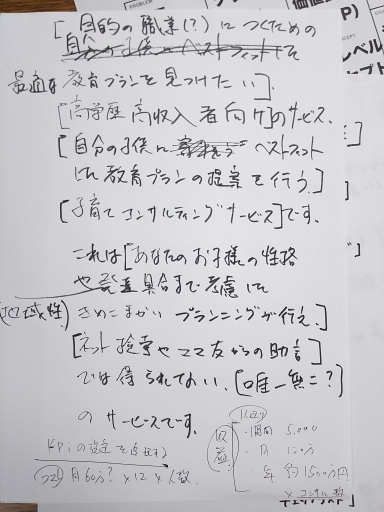 [目的の職業(?)につくための
自分の子供にベストフィットした
最適な教育プランを見つけたい].
[高学歴高収入者向け]のサービス.
[自分の子供に ベストフィット
した教育プランの提案を行う]
[子育てコンサルティングサービス]です.
これは[あなたのお子様の性格
や発達具合まで考慮した
(地域性) きめこまかい プランニングが行え.]
[ネット検索やママ友からの助言]
では得られてない. [唯一無二?]
のサービスです.
KPiの設定を
コスト 月60万? × 12 × 人数
(1人辺り)
収益
・1週間 5,000
・月 120万
・年 約1500万円
× コンサル 数
PROBLEM
レベル